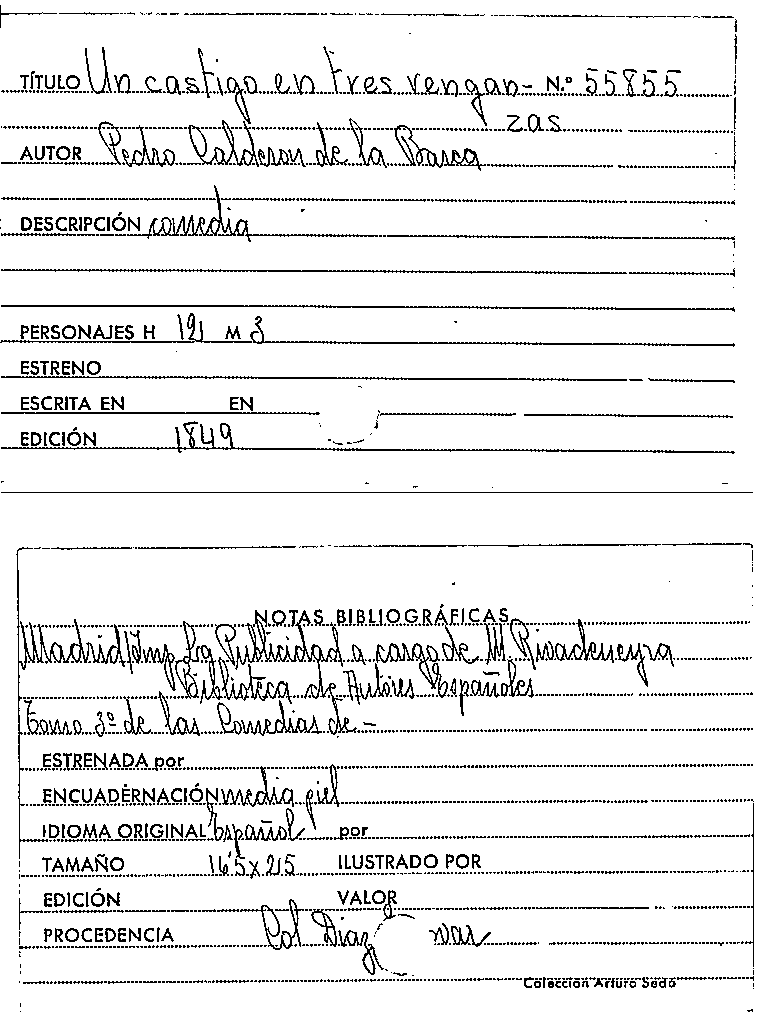 TÍTULO Un castigo en tres vengan- N.º 55855
zas
AUTOR Pedro Calderon de la Barca
DESCRIPCIÓN comedia
PERSONAJES H 12 M 3
ESTRENO
ESCRITA EN EN
EDICIÓN 1849
NOTAS BIBLIOGRÁFICAS
Madrid/Imp. La Publicidad a cargo de M. Rivadeneyra
Biblioteca de Autores Españoles
Tomo 3º de las Comedias de -
ESTRENADA por
ENCUADERNACIÓN media piel
IDIOMA ORIGINAL Español por
TAMAÑO 16'5 x 25 ILUSTRADO POR
EDICIÓN VALOR
PROCEDENCIA Col Diaz
Colección Arturo Sedó